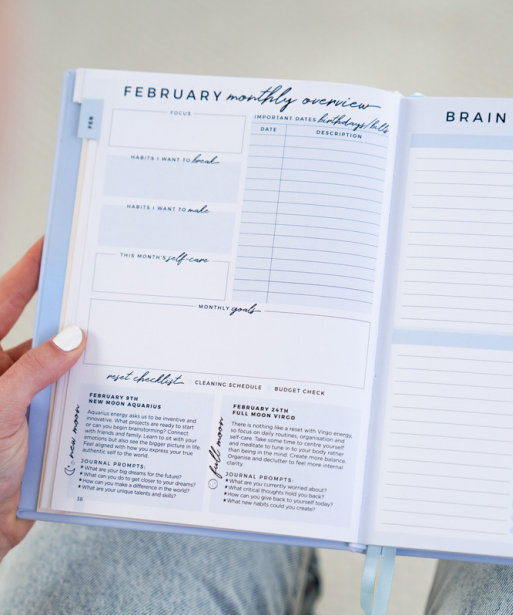 FEBRUARY monthly overview
FEB
FOCUS
HABITS I WANT TO break
HABITS I WANT TO make
THIS MONTH'S self-care
IMPORTANT DATES birthdays/bills
DATE DESCRIPTION
MONTHLY goals
reset checklist CLEANING SCHEDULE BUDGET CHECK
new moon
FEBRUARY 9TH
NEW MOON AQUARIUS
Aquarius energy asks us to be inventive and
innovative. What projects are ready to start
or can you begin brainstorming? Connect
with friends and family. Learn to sit with your
emotions but also see the bigger picture in life.
Feel aligned with how you express your true
authentic self to the world.
JOURNAL PROMPTS:
What are your big dreams for the future?
What can you do to get closer to your dreams?
How can you make a difference in the world?
What are your unique talents and skills?
full moon
FEBRUARY 24TH
FULL MOON VIRGO
There is nothing like a reset with Virgo energy,
so focus on daily routines, organisation and
self-care. Take some time to centre yourself
and meditate to tune in to your body rather
than being in the mind. Create more balance.
Organise and declutter to feel more internal
clarity.
JOURNAL PROMPTS:
What are you currently worried about?
What critical thoughts hold you back?
How can you give back to yourself today?
What new habits could you create?
BRAIN